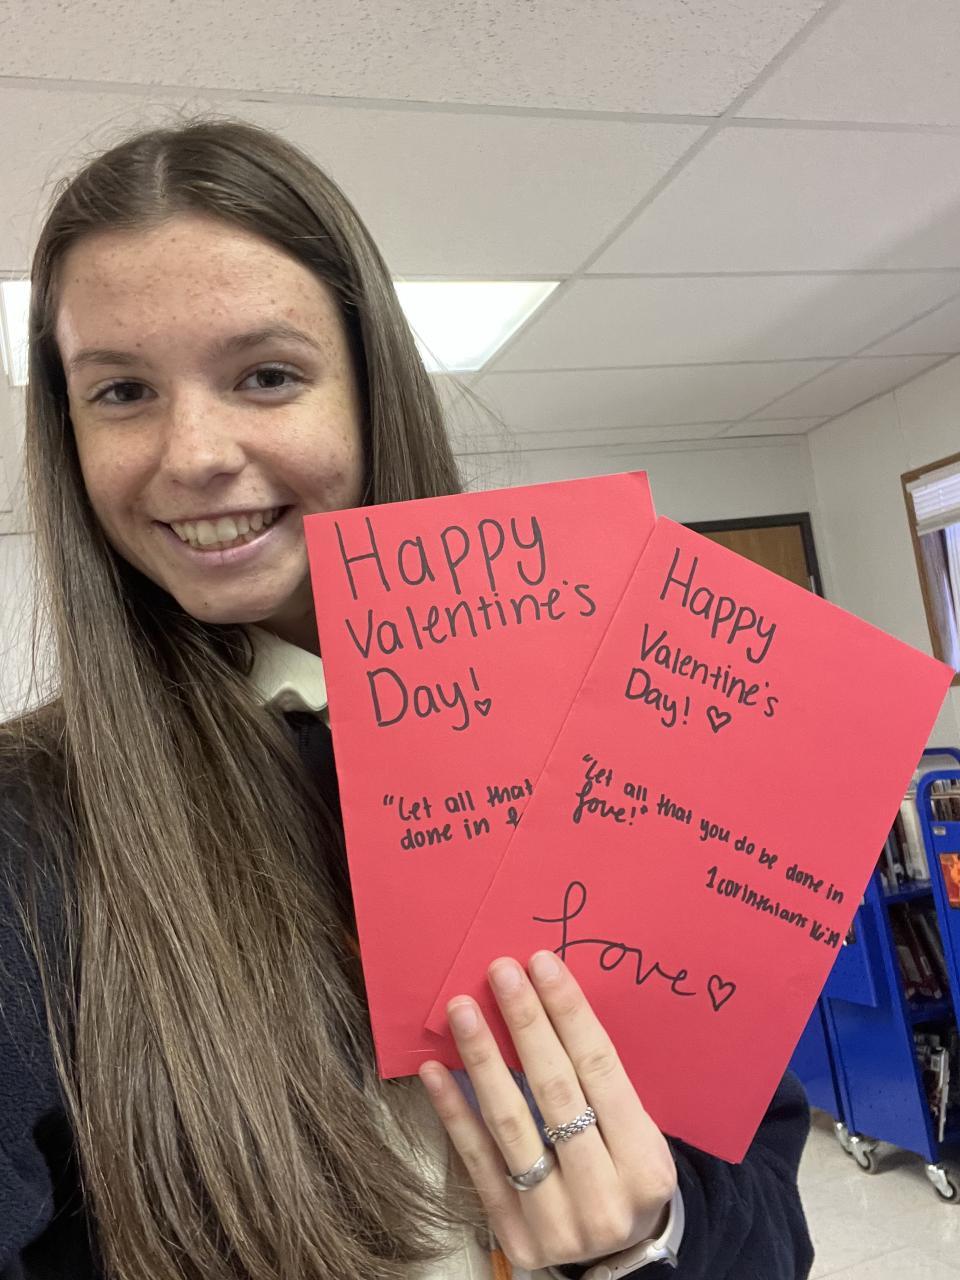 Happy
Valentine's
Day!
"Let all that
done in
Happy
Valentine's
Day!
"Let all that you do be done in
love!"
1 corinthians 16:14
Love